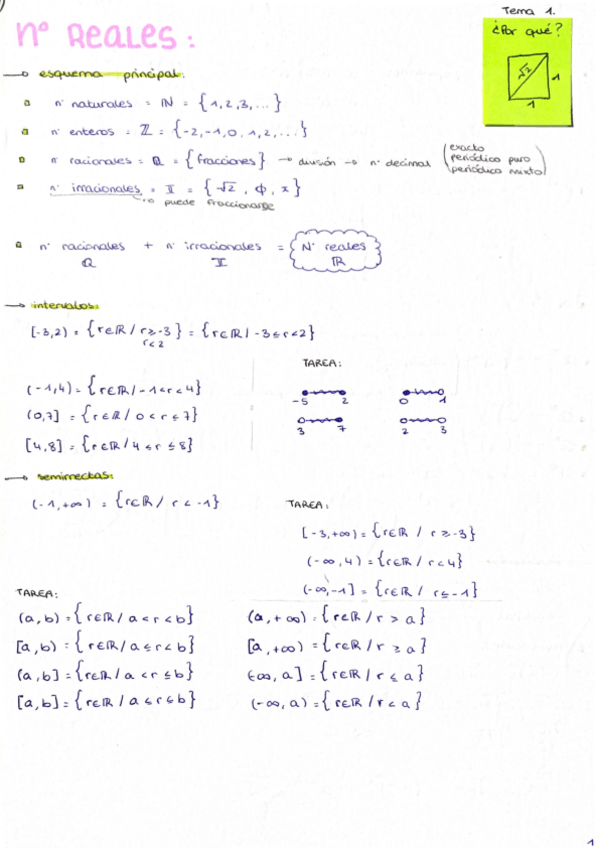 Tema 1.
¿Por qué?
√2
1
1
Nº REALES:
→ esquema principal:
nº naturales = ℕ = {1,2,3,...}
nº enteros = ℤ = {-2,-1,0,1,2,...}
nº racionales = ℚ = {fracciones} → división → nº decimal (exacto
periódico puro
periódico mixto)
nº irracionales = 𝕀 = {√2, ϕ, π}
no puede fraccionarse
nº racionales + nº irracionales = Nº reales
ℚ 𝕀 ℝ
→ intervalos:
[-3,2) = {r∈ℝ / r≥-3 } = {r∈ℝ / -3≤r<2}
r<2
TAREA:
(-1,4) = {r∈ℝ / -1<r<4}
-5 2 0 1
(0,7] = {r∈ℝ / 0<r≤7}
3 7 2 3
[4,8] = {r∈ℝ / 4≤r≤8}
→ semirrectas:
(-1,+∞) = {r∈ℝ / r<-1}
TAREA:
[-3,+∞) = {r∈ℝ / r≥-3}
(-∞,4) = {r∈ℝ / r<4}
(-∞,-1] = {r∈ℝ / r≤-1}
TAREA:
(a,b) = {r∈ℝ / a<r<b}
[a,b) = {r∈ℝ / a≤r<b}
(a,b] = {r∈ℝ / a<r≤b}
[a,b] = {r∈ℝ / a≤r≤b}
(a,+∞) = {r∈ℝ / r>a}
[a,+∞) = {r∈ℝ / r≥a}
(-∞,a] = {r∈ℝ / r≤a}
(-∞,a) = {r∈ℝ / r<a}
1